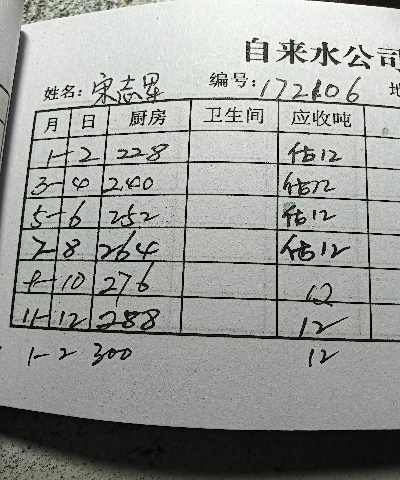 自来水公司
姓名: 宋志军 编号: 172106
月 日 厨房 卫生间 应收吨
1-2 228 估12
3-4 240 估12
5-6 252 估12
7-8 264 估12
9-10 276 12
11-12 288 12
1-2 300 12